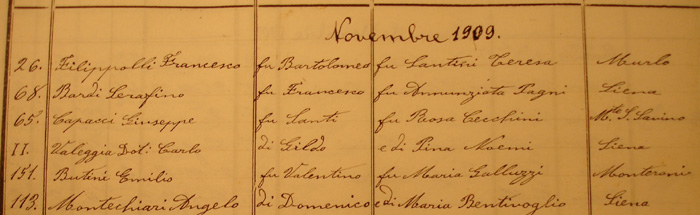 Novembre 1909.
26. Filippolli Francesco fu Bartolomeo fu Santini Teresa Murlo
68. Bardi Serafino fu Francesco fu Annunziata Pagni Siena
65. Capacci Giuseppe fu Santi fu Rosa Cecchini M.te S. Savino
II. Valeggia Dot: Carlo di Gildo e di Pina Noemi Siena
151. Butini Emilio fu Valentino fu Maria Galluzzi Monteroni
113. Montechiari Angelo di Domenico e di Maria Bentivoglio Siena